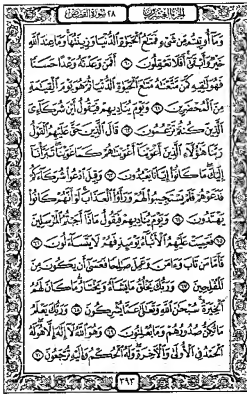 الجزء العشرون ٢٨ سورة القصص
وَمَآ أُوتِيتُم مِّن شَىْءٍ فَمَتَـٰعُ ٱلْحَيَوٰةِ ٱلدُّنْيَا وَزِينَتُهَا وَمَا عِندَ ٱللَّهِ
خَيْرٌ وَأَبْقَىٰٓ أَفَلَا تَعْقِلُونَ ٦٠ أَفَمَن وَعَدْنَـٰهُ وَعْدًا حَسَنًا
فَهُوَ لَـٰقِيهِ كَمَن مَّتَّعْنَـٰهُ مَتَـٰعَ ٱلْحَيَوٰةِ ٱلدُّنْيَا ثُمَّ هُوَ يَوْمَ ٱلْقِيَـٰمَةِ
مِنَ ٱلْمُحْضَرِينَ ٦١ وَيَوْمَ يُنَادِيهِمْ فَيَقُولُ أَيْنَ شُرَكَآءِىَ
ٱلَّذِينَ كُنتُمْ تَزْعُمُونَ ٦٢ قَالَ ٱلَّذِينَ حَقَّ عَلَيْهِمُ ٱلْقَوْلُ
رَبَّنَا هَـٰٓؤُلَآءِ ٱلَّذِينَ أَغْوَيْنَآ أَغْوَيْنَـٰهُمْ كَمَا غَوَيْنَا تَبَرَّأْنَآ
إِلَيْكَ مَا كَانُوٓا۟ إِيَّانَا يَعْبُدُونَ ٦٣ وَقِيلَ ٱدْعُوا۟ شُرَكَآءَكُمْ
فَدَعَوْهُمْ فَلَمْ يَسْتَجِيبُوا۟ لَهُمْ وَرَأَوُا۟ ٱلْعَذَابَ لَوْ أَنَّهُمْ كَانُوا۟
يَهْتَدُونَ ٦٤ وَيَوْمَ يُنَادِيهِمْ فَيَقُولُ مَاذَآ أَجَبْتُمُ ٱلْمُرْسَلِينَ
٦٥ فَعَمِيَتْ عَلَيْهِمُ ٱلْأَنۢبَآءُ يَوْمَئِذٍ فَهُمْ لَا يَتَسَآءَلُونَ ٦٦
فَأَمَّا مَن تَابَ وَءَامَنَ وَعَمِلَ صَـٰلِحًا فَعَسَىٰٓ أَن يَكُونَ مِنَ
ٱلْمُفْلِحِينَ ٦٧ وَرَبُّكَ يَخْلُقُ مَا يَشَآءُ وَيَخْتَارُ مَا كَانَ لَهُمُ
ٱلْخِيَرَةُ سُبْحَـٰنَ ٱللَّهِ وَتَعَـٰلَىٰ عَمَّا يُشْرِكُونَ ٦٨ وَرَبُّكَ يَعْلَمُ
مَا تُكِنُّ صُدُورُهُمْ وَمَا يُعْلِنُونَ ٦٩ وَهُوَ ٱللَّهُ لَآ إِلَـٰهَ إِلَّا هُوَ لَهُ
ٱلْحَمْدُ فِى ٱلْأُولَىٰ وَٱلْـَٔاخِرَةِ وَلَهُ ٱلْحُكْمُ وَإِلَيْهِ تُرْجَعُونَ ٧٠
٣٩٣